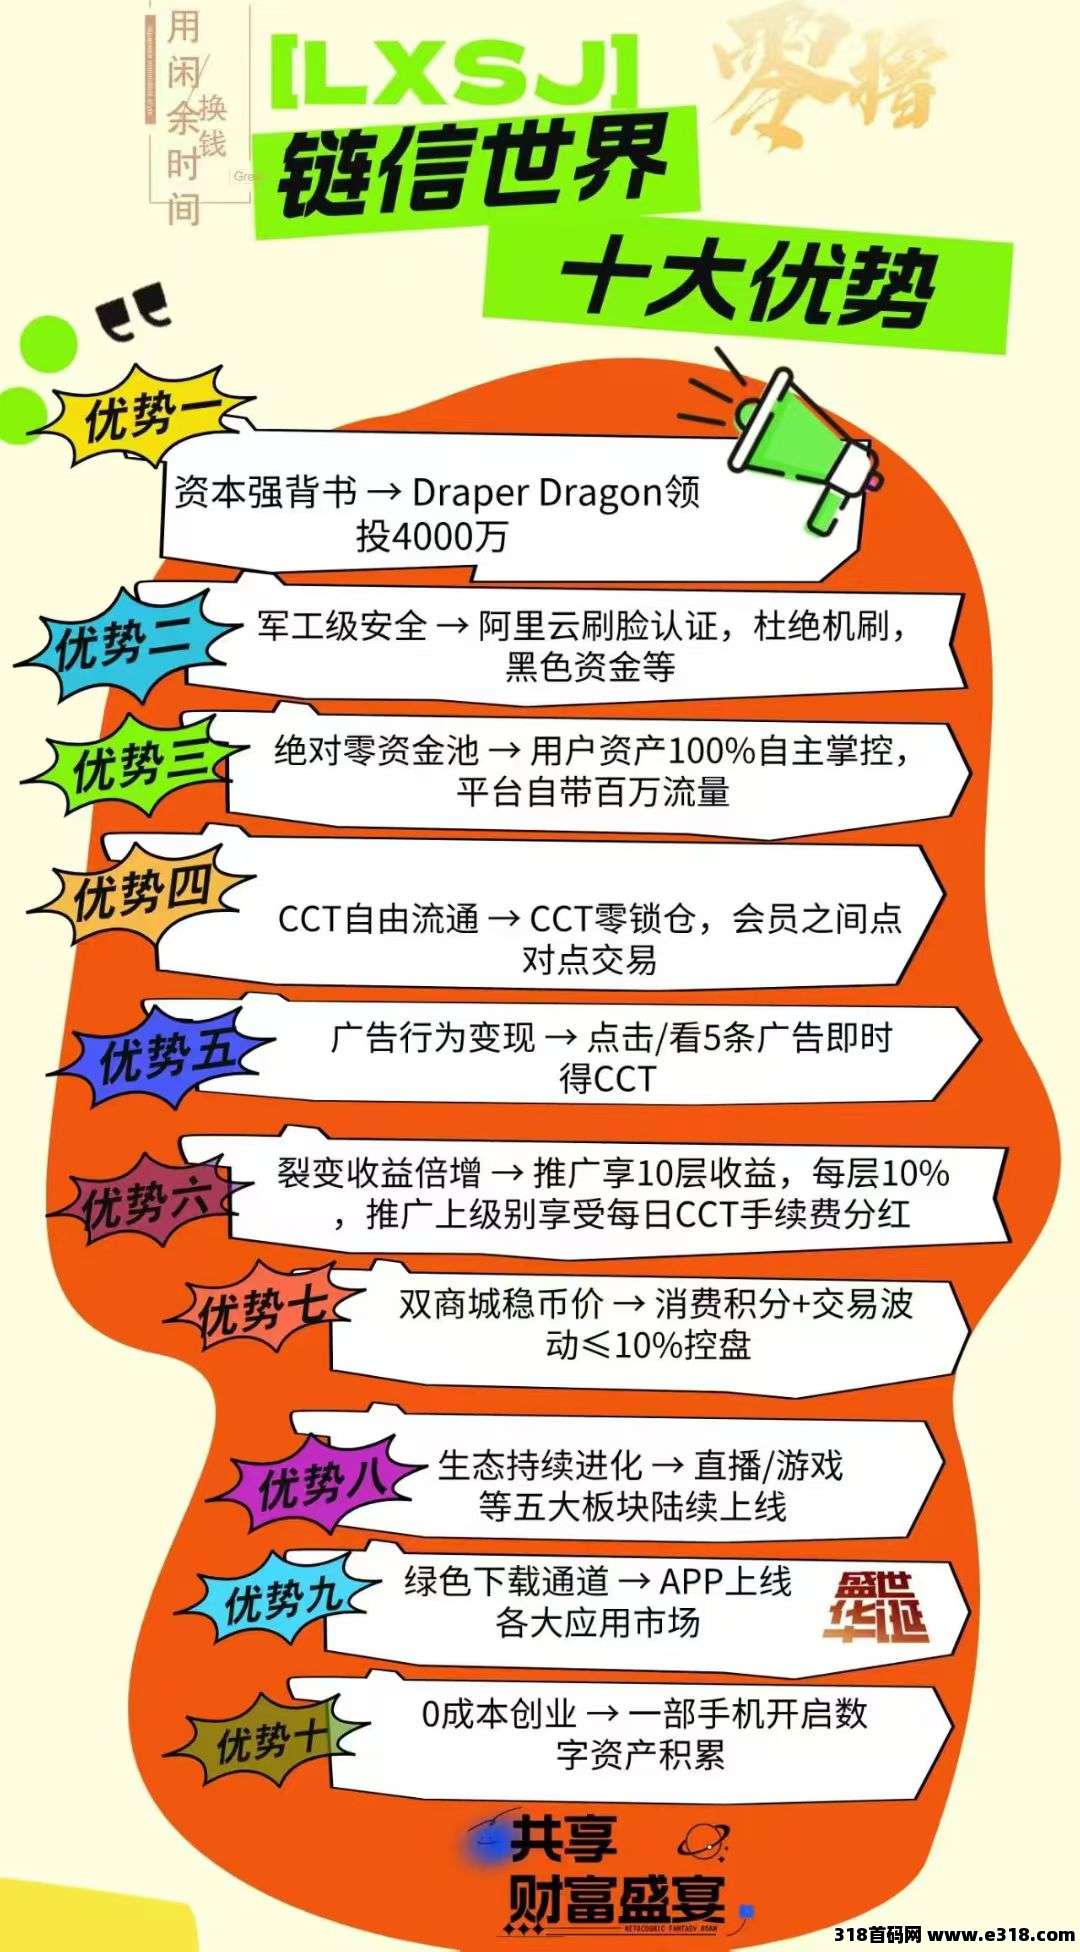 用闲余时间
换钱
Gre
[LXSJ]
零撸
链信世界
十大优势
优势一
资本强背书 → Draper Dragon领
投4000万
优势二
军工级安全 → 阿里云刷脸认证，杜绝机刷，
黑色资金等
优势三
绝对零资金池 → 用户资产100%自主掌控，
平台自带百万流量
优势四
CCT自由流通 → CCT零锁仓，会员之间点
对点交易
优势五
广告行为变现 → 点击/看5条广告即时
得CCT
优势六
裂变收益倍增 → 推广享10层收益，每层10%
，推广上级别享受每日CCT手续费分红
优势七
双商城稳币价 → 消费积分+交易波
动≤10%控盘
优势八
生态持续进化 → 直播/游戏
等五大板块陆续上线
优势九
绿色下载通道 → APP上线
各大应用市场
盛世
华诞
优势十
0成本创业 → 一部手机开启数
字资产积累
共享
财富盛宴
318首码网 www.e318.com